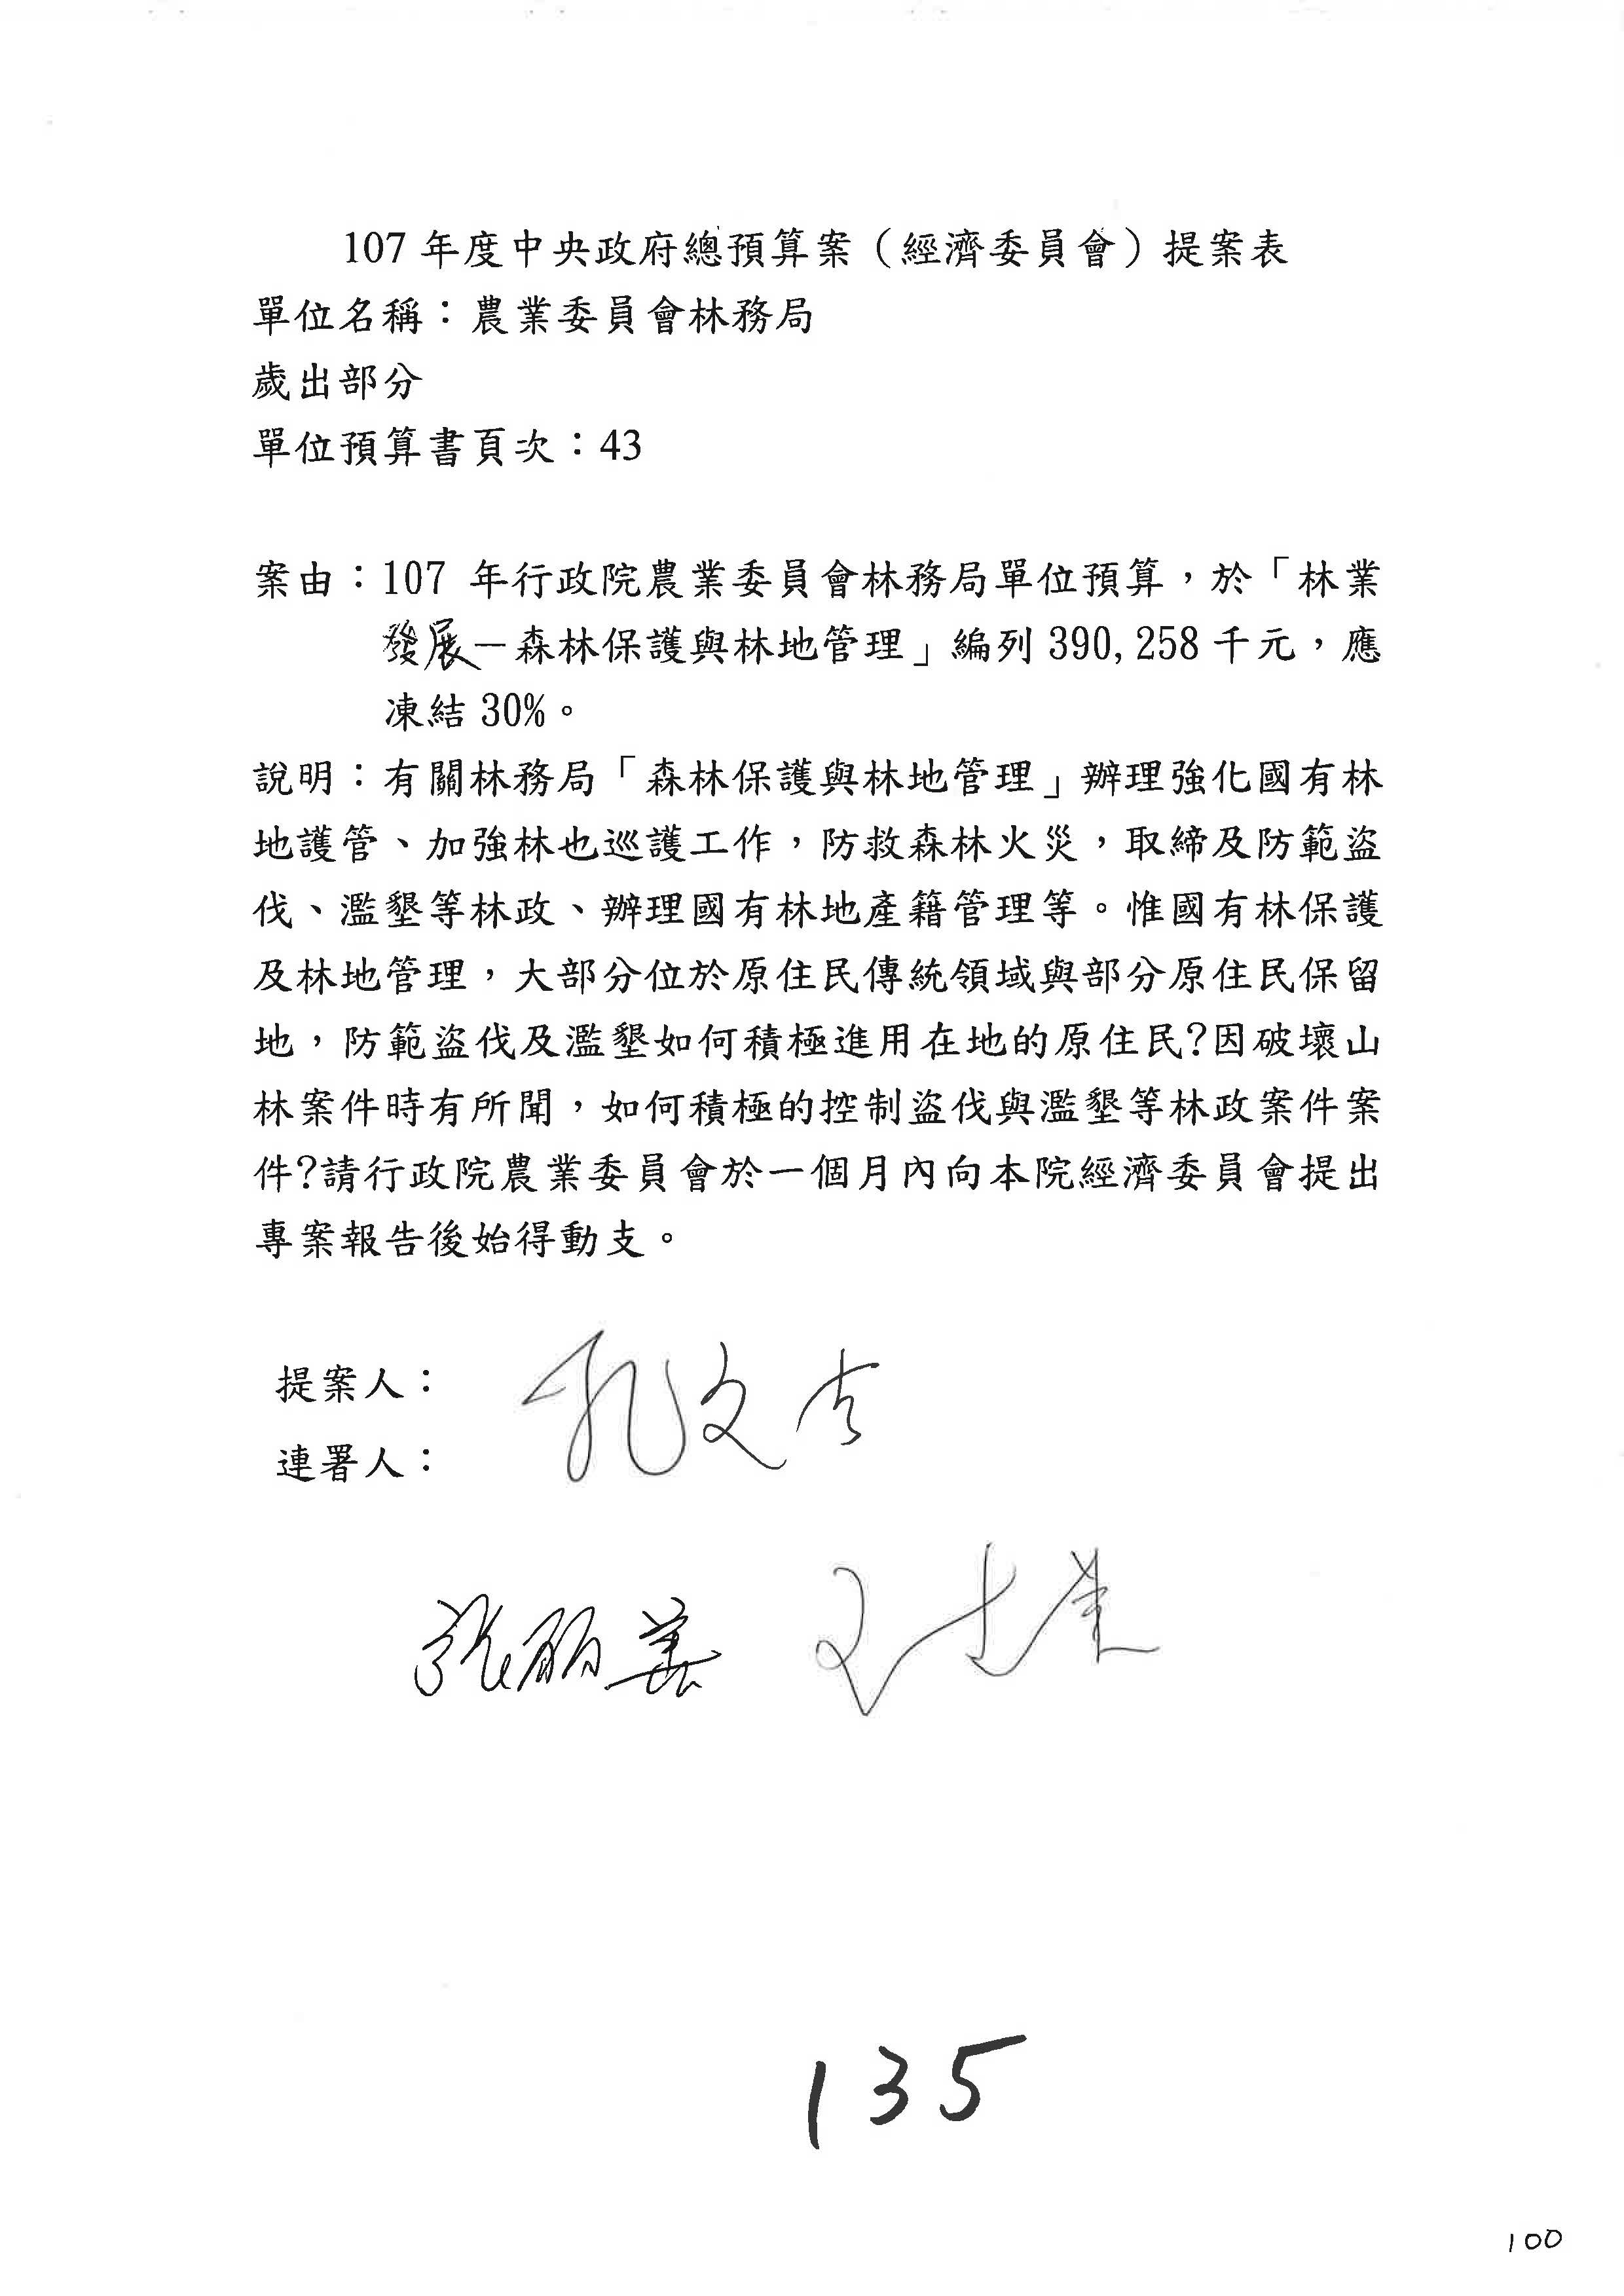 107 年度中央政府總預算案（經濟委員會）提案表
單位名稱：農業委員會林務局
歲出部分
單位預算書頁次：43
案由：107 年行政院農業委員會林務局單位預算，於「林業
發展－森林保護與林地管理」編列 390,258 千元，應
凍結 30%。
說明：有關林務局「森林保護與林地管理」辦理強化國有林
地護管、加強林也巡護工作，防救森林火災，取締及防範盜
伐、濫墾等林政、辦理國有林地產籍管理等。惟國有林保護
及林地管理，大部分位於原住民傳統領域與部分原住民保留
地，防範盜伐及濫墾如何積極進用在地的原住民?因破壞山
林案件時有所聞，如何積極的控制盜伐與濫墾等林政案件案
件?請行政院農業委員會於一個月內向本院經濟委員會提出
專案報告後始得動支。
提案人： 孔文吉
連署人：
張麗善
135
100